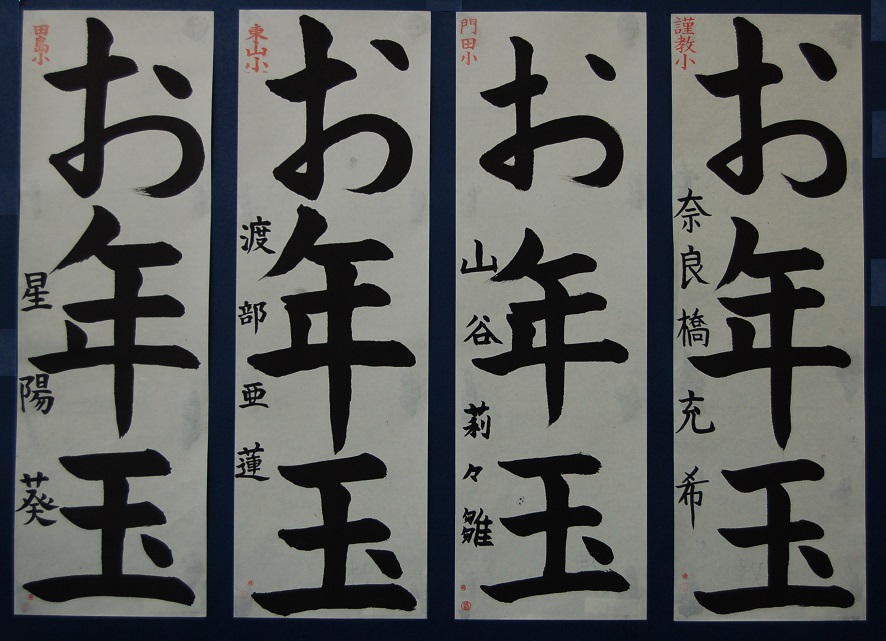 謹教小
お年玉
奈良橋充希
門田小
お年玉
山谷莉々雛
東山小
お年玉
渡部亜蓮
田島小
お年玉
星陽葵